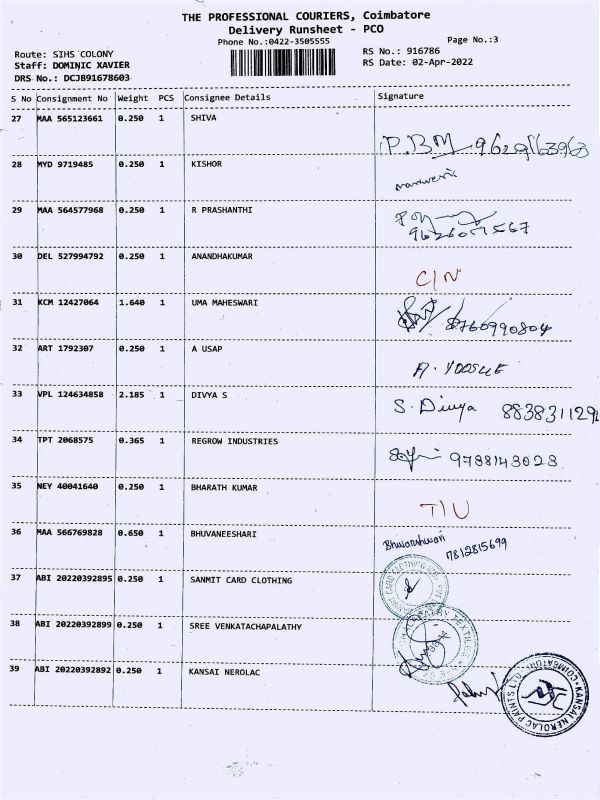 THE PROFESSIONAL COURIERS, Coimbatore
Delivery Runsheet - PCO
Phone No.:0422-3505555
Page No.:3
Route: SIHS COLONY
RS No.: 916786
Staff: DOMINIC XAVIER
RS Date: 02-Apr-2022
DRS No.: DCJB91678603
S No Consignment No Weight PCS Consignee Details Signature
27 MAA 565123661 0.250 1 SHIVA
P.BM
28 MYD 9719485 0.250 1 KISHOR
29 MAA 564577968 0.250 1 R PRASHANTHI
30 DEL 527994792 0.250 1 ANANDHAKUMAR
C/N
31 KCM 12427064 1.640 1 UMA MAHESWARI
8760990804
32 ART 1792307 0.250 1 A USAP
A. YOOSUF
33 VPL 124634858 2.185 1 DIVYA S
S. Divya 883831129
34 TPT 2068575 0.365 1 REGROW INDUSTRIES
9788143023
35 NEY 40041640 0.250 1 BHARATH KUMAR
T/U
36 MAA 566769828 0.650 1 BHUVANEESHARI
7812815699
37 ABI 20220392895 0.250 1 SANMIT CARD CLOTHING
38 ABI 20220392899 0.250 1 SREE VENKATACHAPALATHY
39 ABI 20220392892 0.250 1 KANSAI NEROLAC
KANSAI NEROLAC PAINTS LTD. COIMBATORE